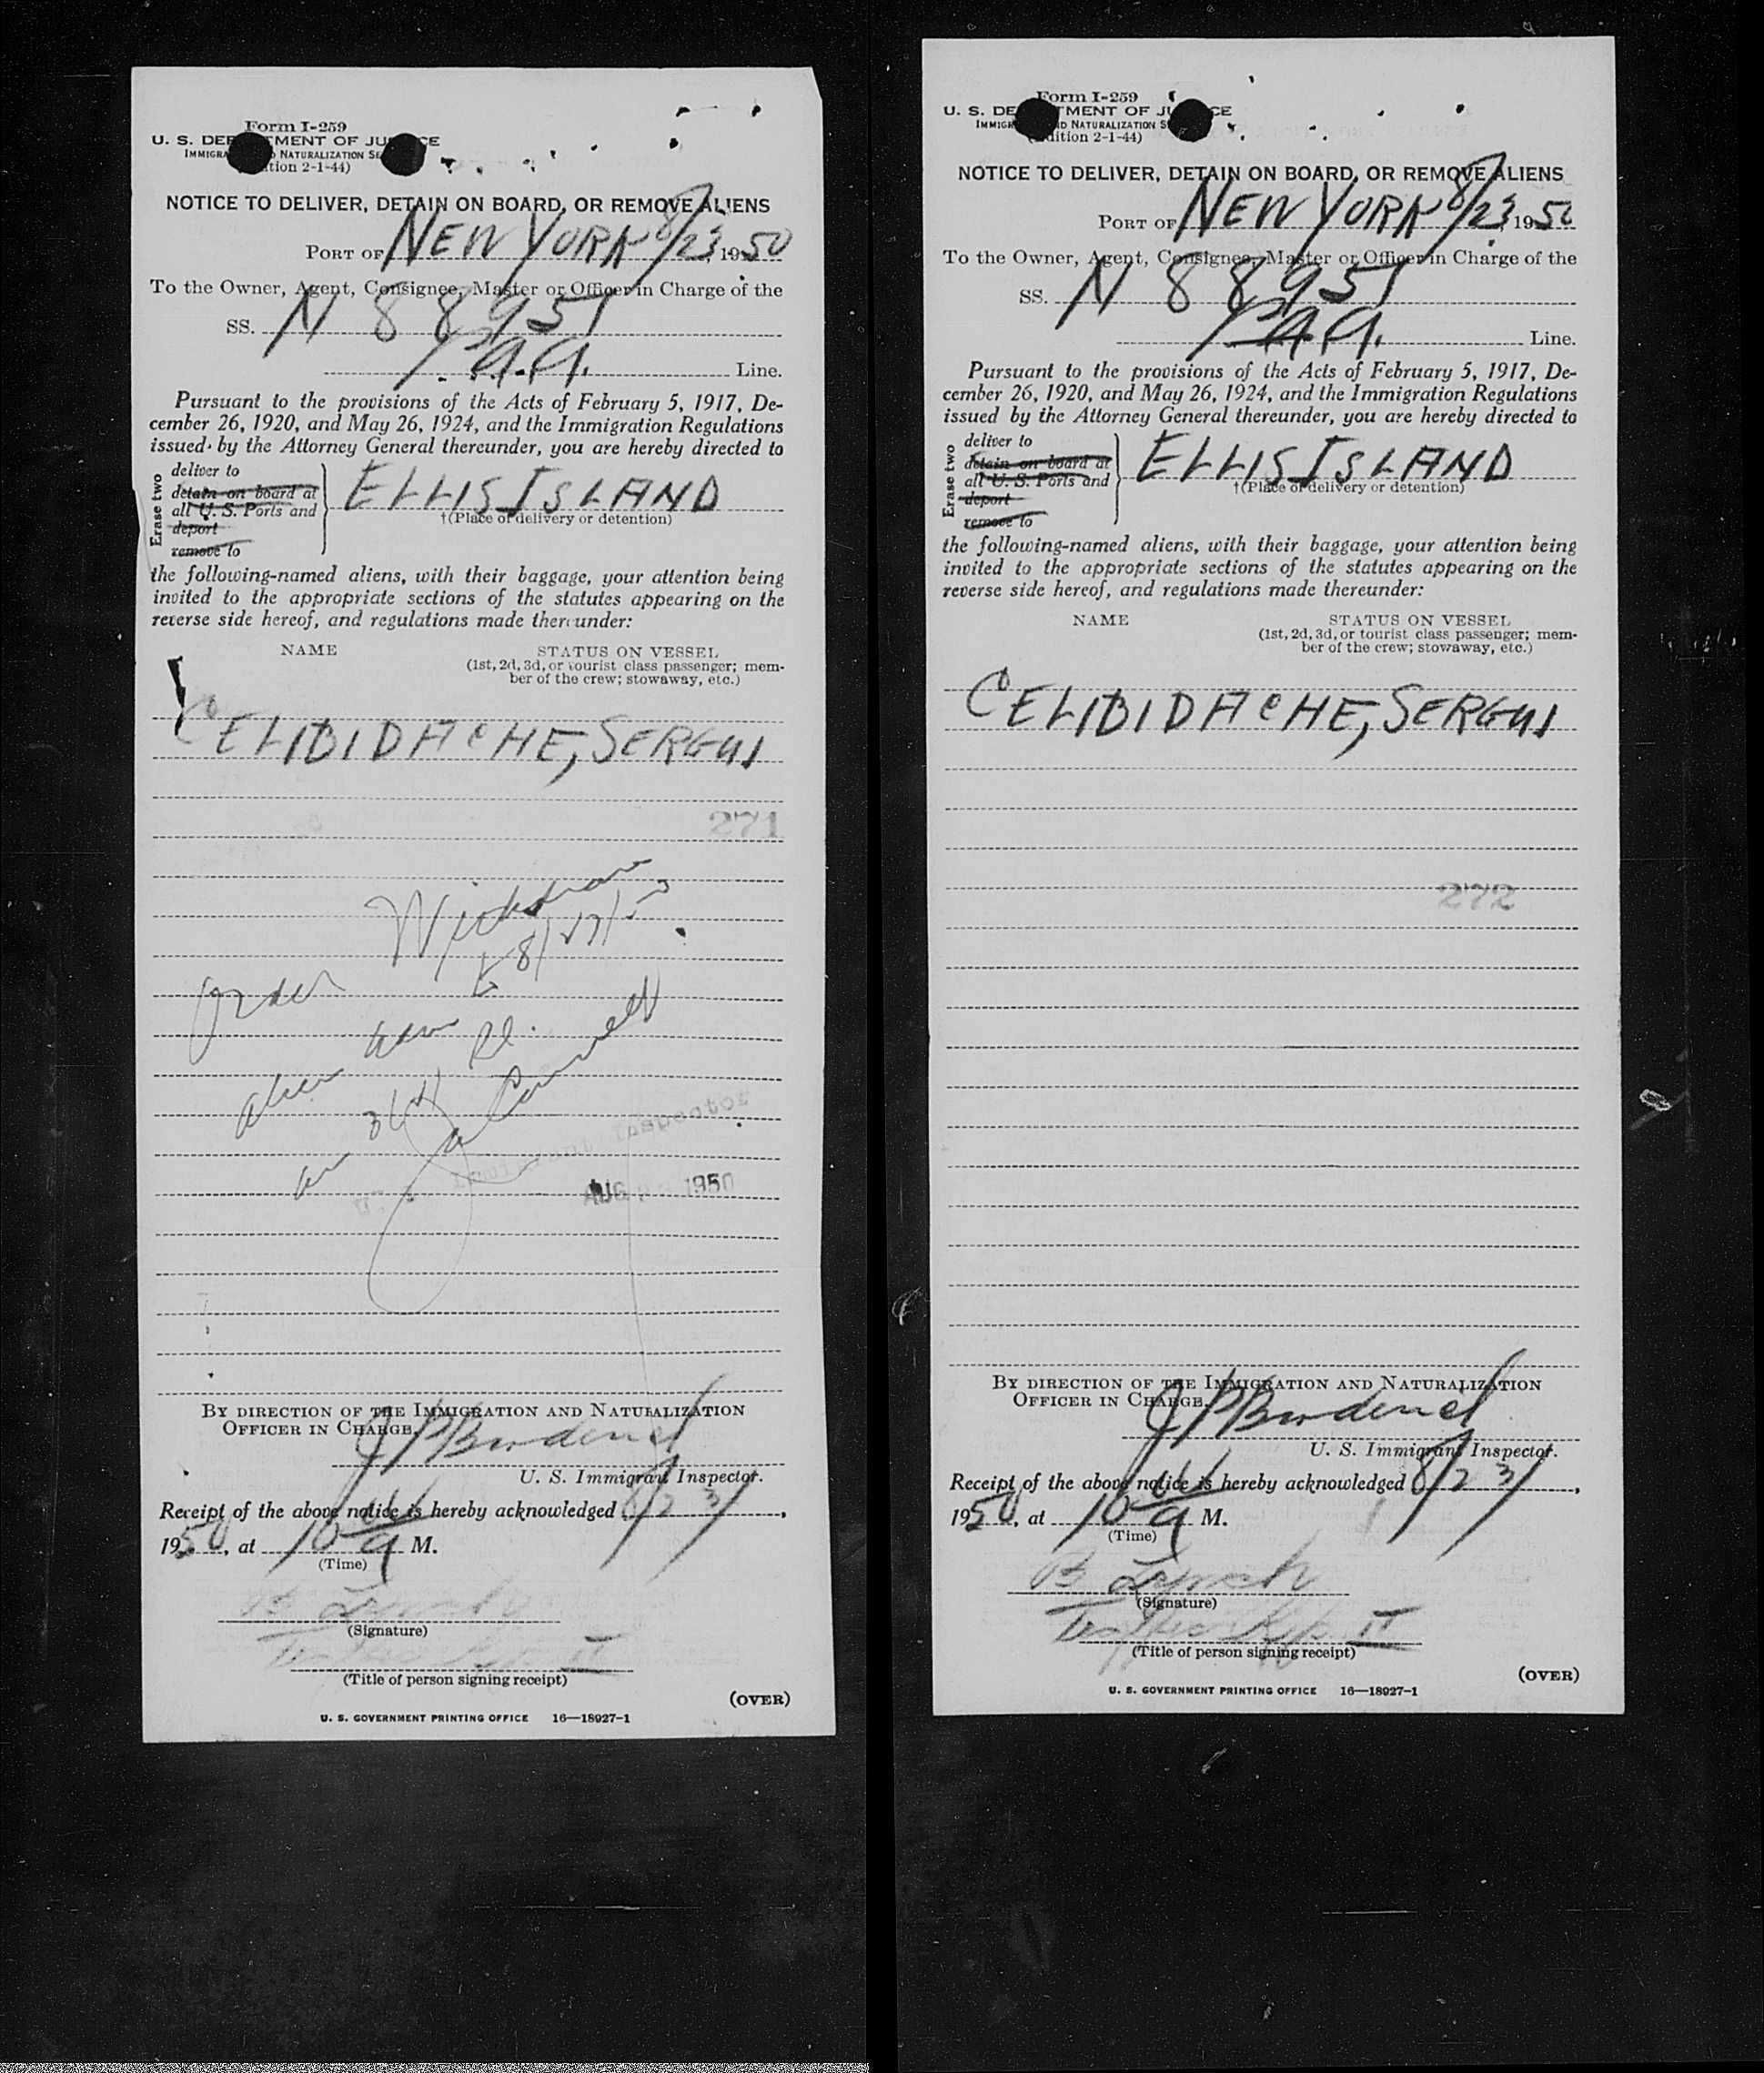 Form I-259
U. S. DEPARTMENT OF JUSTICE
IMMIGRATION AND NATURALIZATION SE
(Edition 2-1-44)
NOTICE TO DELIVER, DETAIN ON BOARD, OR REMOVE ALIENS
PORT OF NEW YORK 8/23, 1950
To the Owner, Agent, Consignee, Master or Officer in Charge of the
SS. N 88951
Line.
Pursuant to the provisions of the Acts of February 5, 1917, De-
cember 26, 1920, and May 26, 1924, and the Immigration Regulations
issued by the Attorney General thereunder, you are hereby directed to
Erase two
deliver to
detain on board at
all U. S. Ports and
deport
remove to
ELLIS ISLAND
†(Place of delivery or detention)
the following-named aliens, with their baggage, your attention being
invited to the appropriate sections of the statutes appearing on the
reverse side hereof, and regulations made thereunder:
NAME STATUS ON VESSEL
(1st, 2d, 3d, or tourist class passenger; mem-
ber of the crew; stowaway, etc.)
CELIBIDACHE, SERGIU
271
8/27/50
Order
alien
Inspector
AUG 1950
BY DIRECTION OF THE IMMIGRATION AND NATURALIZATION
OFFICER IN CHARGE.
U. S. Immigrant Inspector.
Receipt of the above notice is hereby acknowledged 8/23/,
1950, at 10 00 a M.
(Time)
B Lynch
(Signature)
(Title of person signing receipt)
(OVER)
U. S. GOVERNMENT PRINTING OFFICE 16—18927-1
Form I-259
U. S. DEPARTMENT OF JUSTICE
IMMIGRATION AND NATURALIZATION S
(Edition 2-1-44)
NOTICE TO DELIVER, DETAIN ON BOARD, OR REMOVE ALIENS
PORT OF NEW YORK 8/23, 1950
To the Owner, Agent, Consignee, Master or Officer in Charge of the
SS. N 88951
Line.
Pursuant to the provisions of the Acts of February 5, 1917, De-
cember 26, 1920, and May 26, 1924, and the Immigration Regulations
issued by the Attorney General thereunder, you are hereby directed to
Erase two
deliver to
detain on board at
all U. S. Ports and
deport
remove to
ELLIS ISLAND
†(Place of delivery or detention)
the following-named aliens, with their baggage, your attention being
invited to the appropriate sections of the statutes appearing on the
reverse side hereof, and regulations made thereunder:
NAME STATUS ON VESSEL
(1st, 2d, 3d, or tourist class passenger; mem-
ber of the crew; stowaway, etc.)
CELIBIDACHE, SERGIU
272
BY DIRECTION OF THE IMMIGRATION AND NATURALIZATION
OFFICER IN CHARGE.
U. S. Immigrant Inspector.
Receipt of the above notice is hereby acknowledged 8/23/,
1950, at 10 00 a M.
(Time)
B Lynch
(Signature)
(Title of person signing receipt)
(OVER)
U. S. GOVERNMENT PRINTING OFFICE 16—18927-1